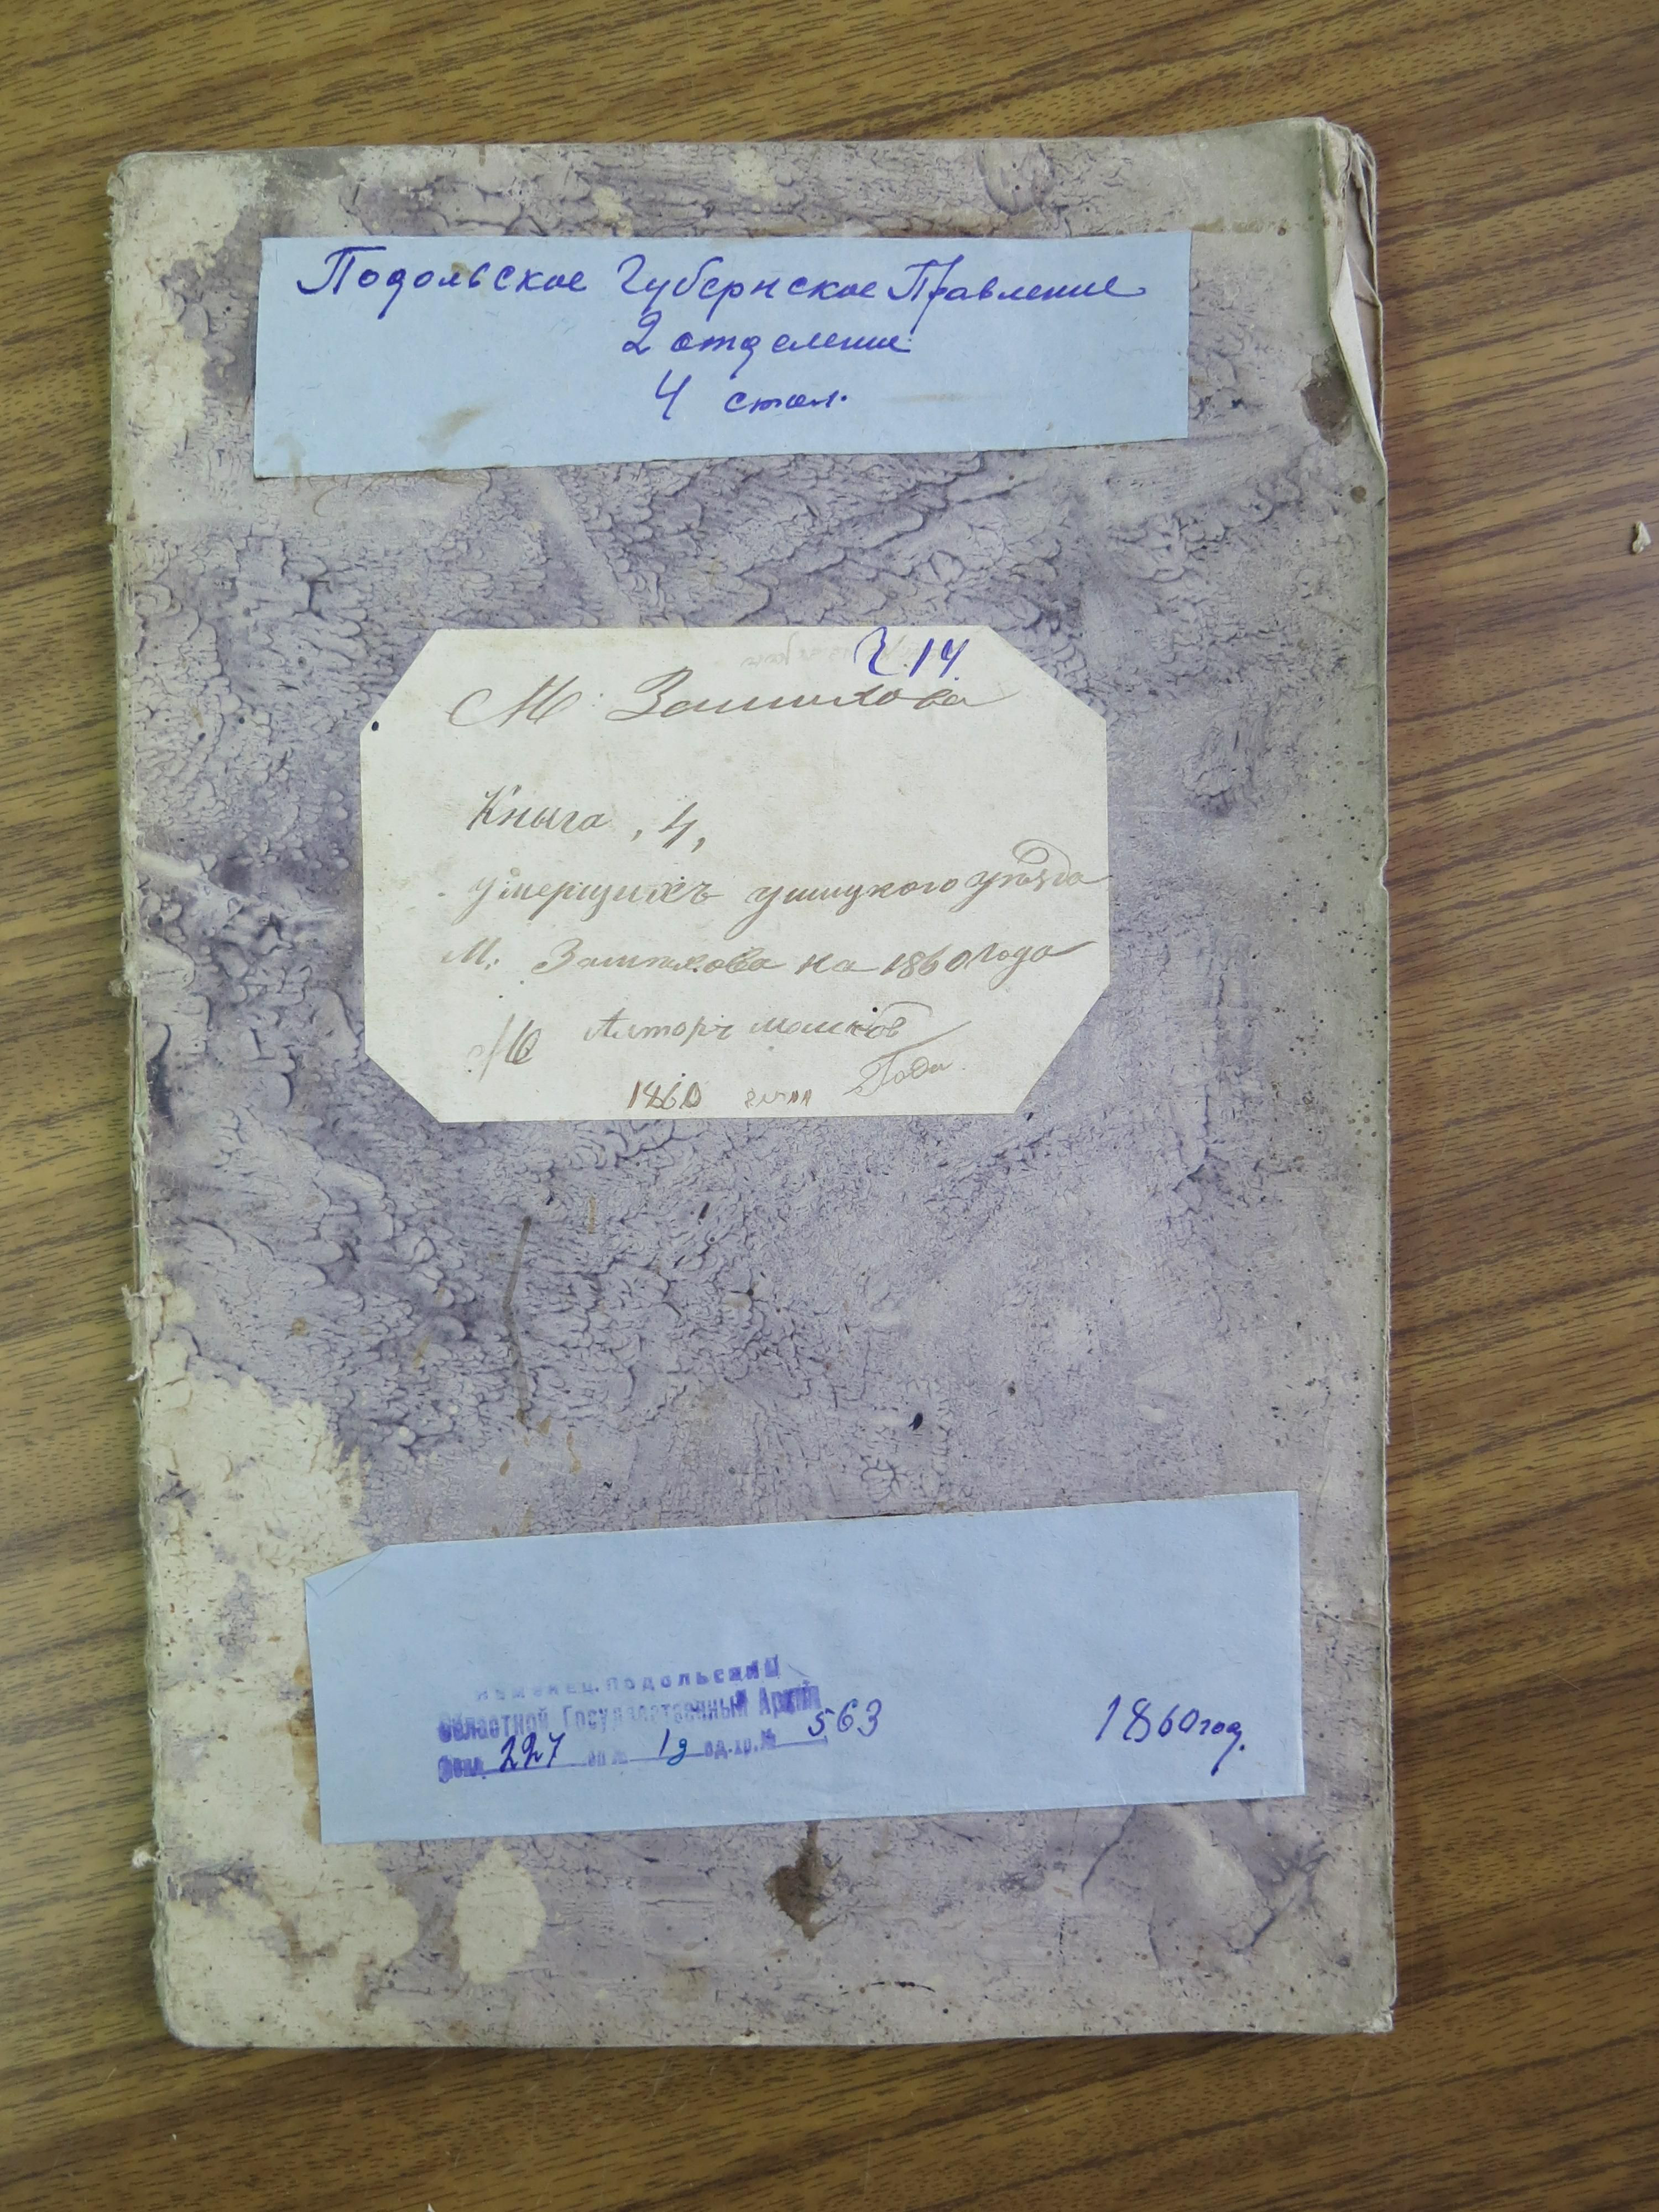 Подольское Губернское Правление
2 отделение
4 стол.
Ч. 14
М: Замихова
Книга, 4,
умерщихъ ушицкого уезда
М: Замихова на 1860 Года
1860 Года
Каменец. Подольский
Областной Государственный Архив
Фонд 227 оп № 1д ед.хр.№ 563
1860 год.